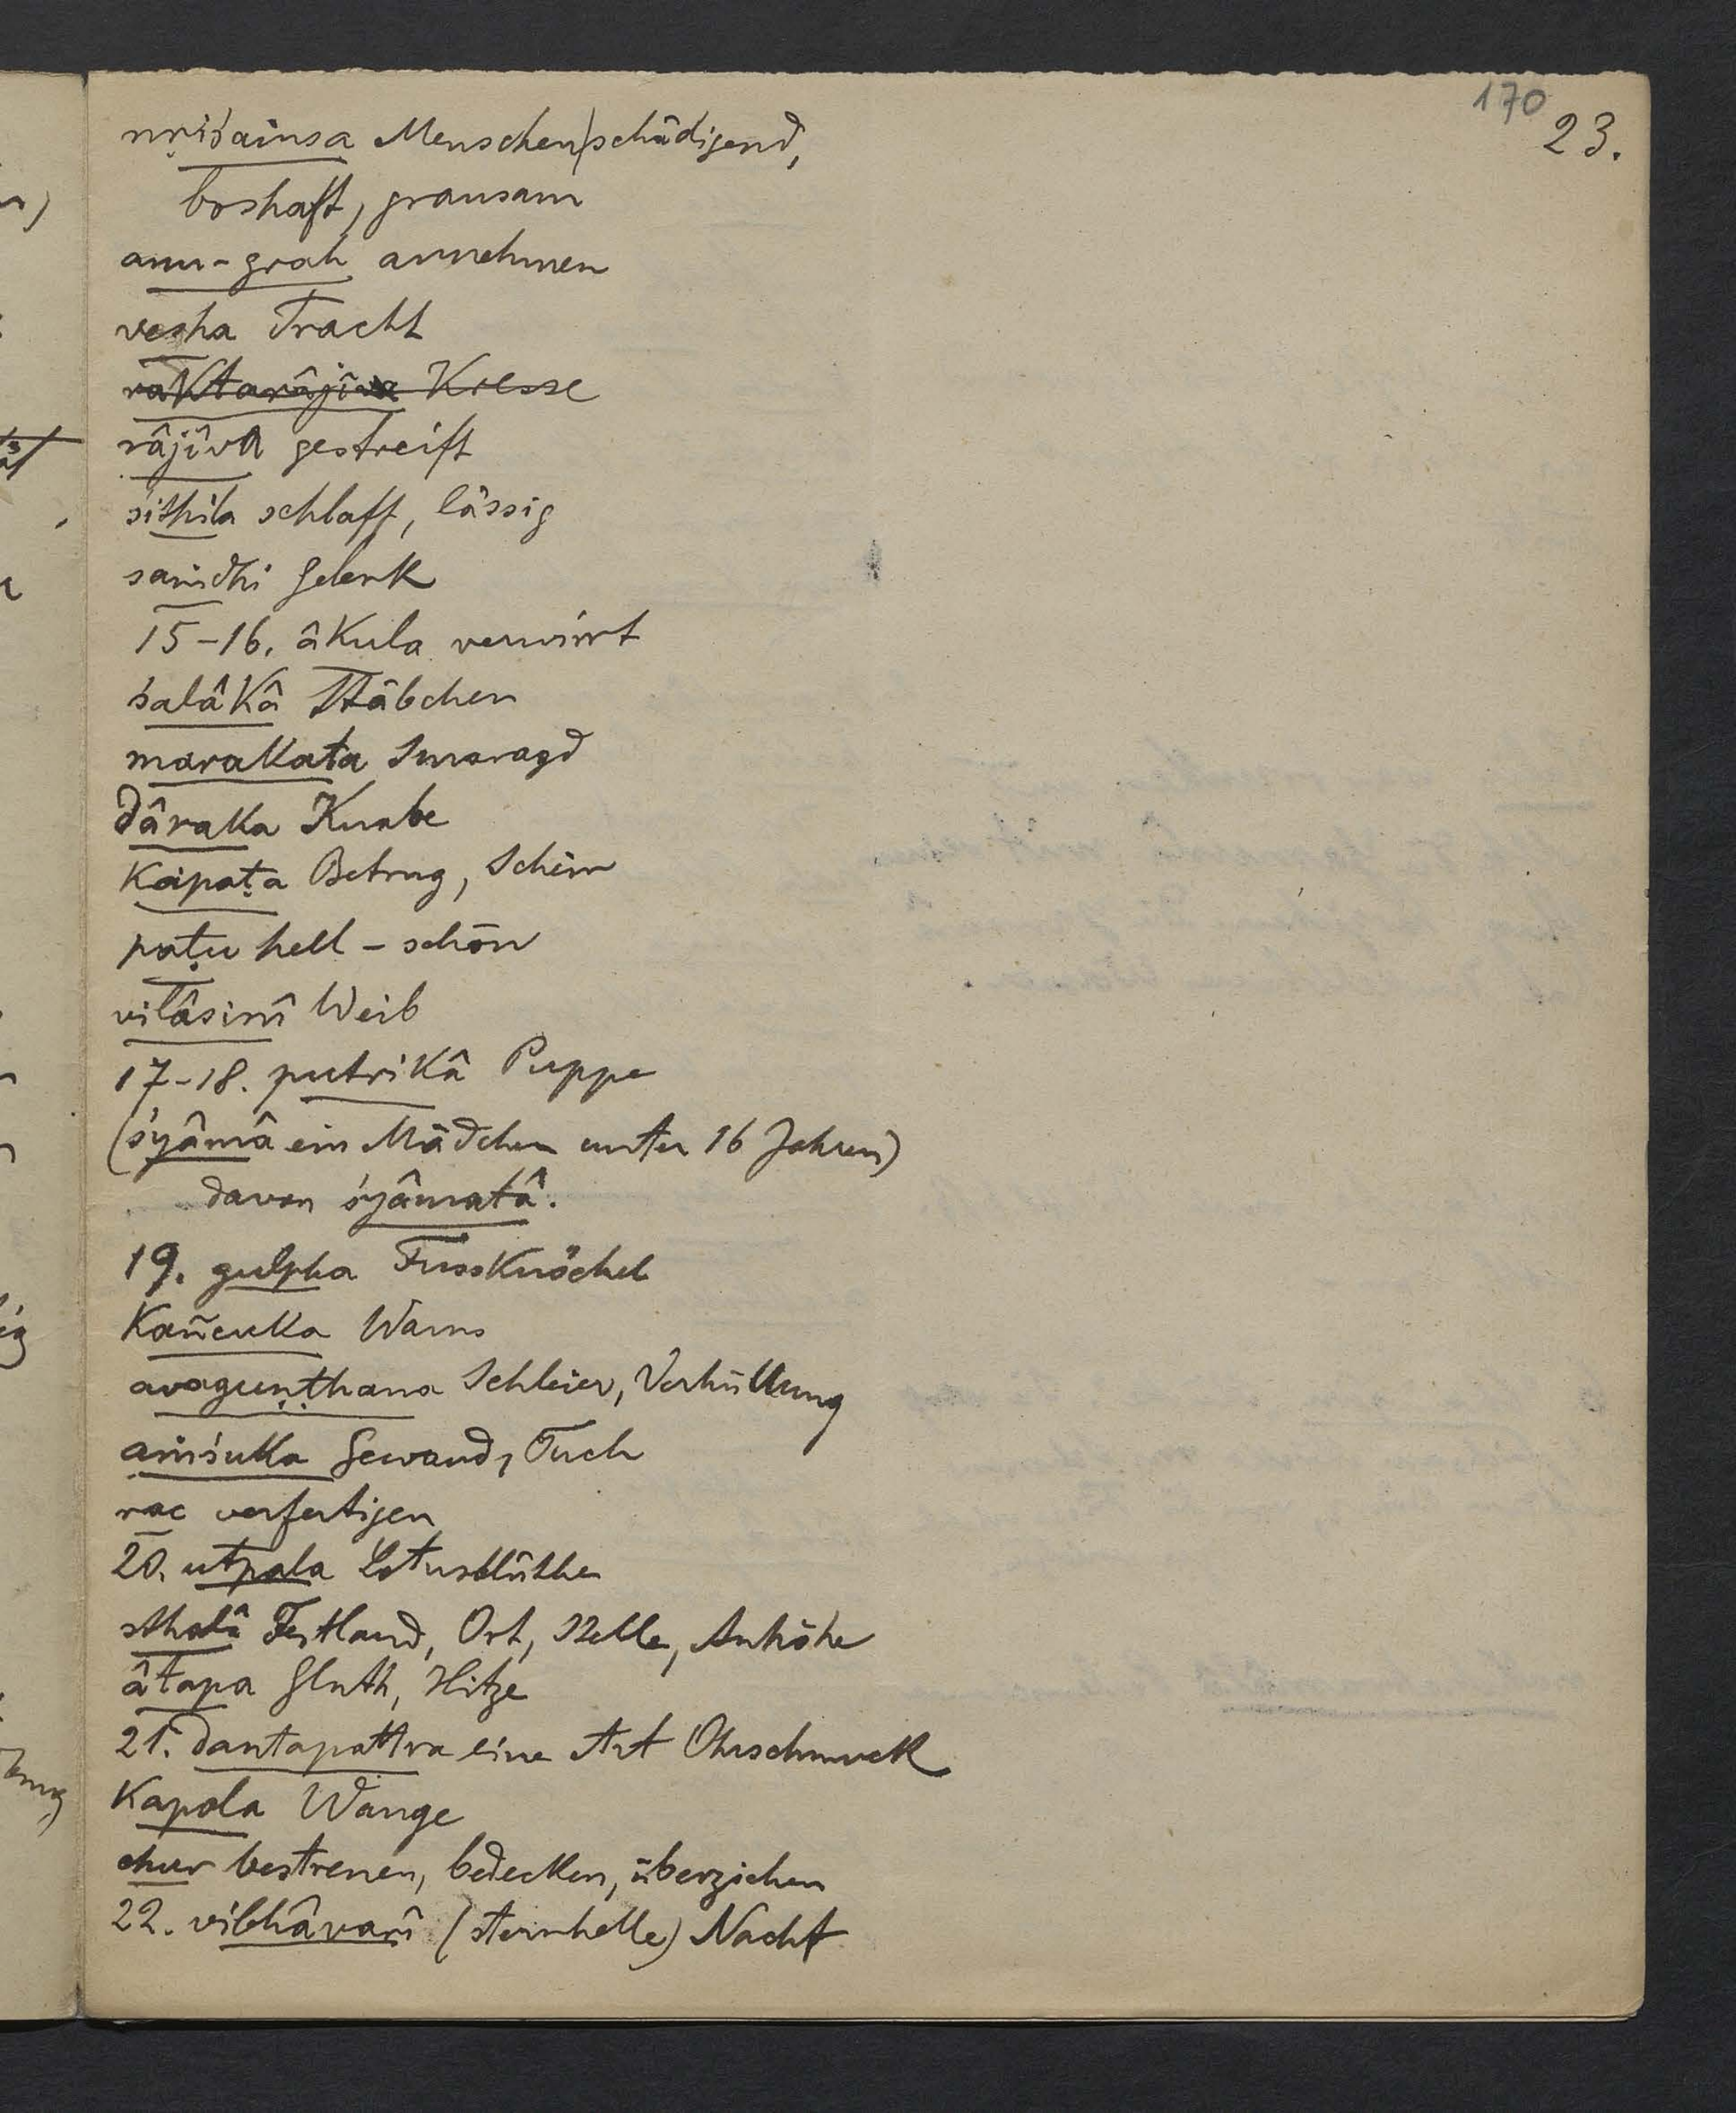 170
23.
nṛiśaṁsa Menschen/schädigend,
boshaft, grausam
anu-grah annehmen
vesha Tracht
raktarâjîva Kresse
râjîva gestreift
śithila schlaff, lässig
saṁdhi Gelenk
15-16. âkula verwirrt
śalâkâ Stäbchen
marakata Smaragd
dâraka Knabe
kapaṭa Betrug, Schein
paṭu hell - schön
vilâsinî Weib
17-18. putrikâ Puppe
(śyâmâ ein Mädchen unter 16 Jahren)
davon śyâmatâ.
19. gulpha Fussknöchel
kañcuka Wams
avaguṇṭhana Schleier, Verhüllung
aṁśuka Gewand, Tuch
rac verfertigen
20. utpala Lotusblüthe
sthalî Festland, Ort, Stelle, Anhöhe
âtapa Gluth, Hitze
21. dantapattra eine Art Ohrschmuck
kapola Wange
chur bestreuen, bedecken, überziehen
22. vibhâvarî (sternhelle) Nacht